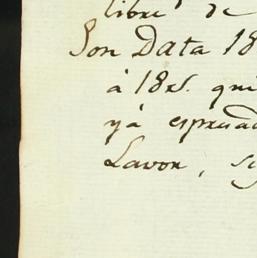 libre de
Son Data 18
à 18rs. qui
yà espresad
Lavor, si